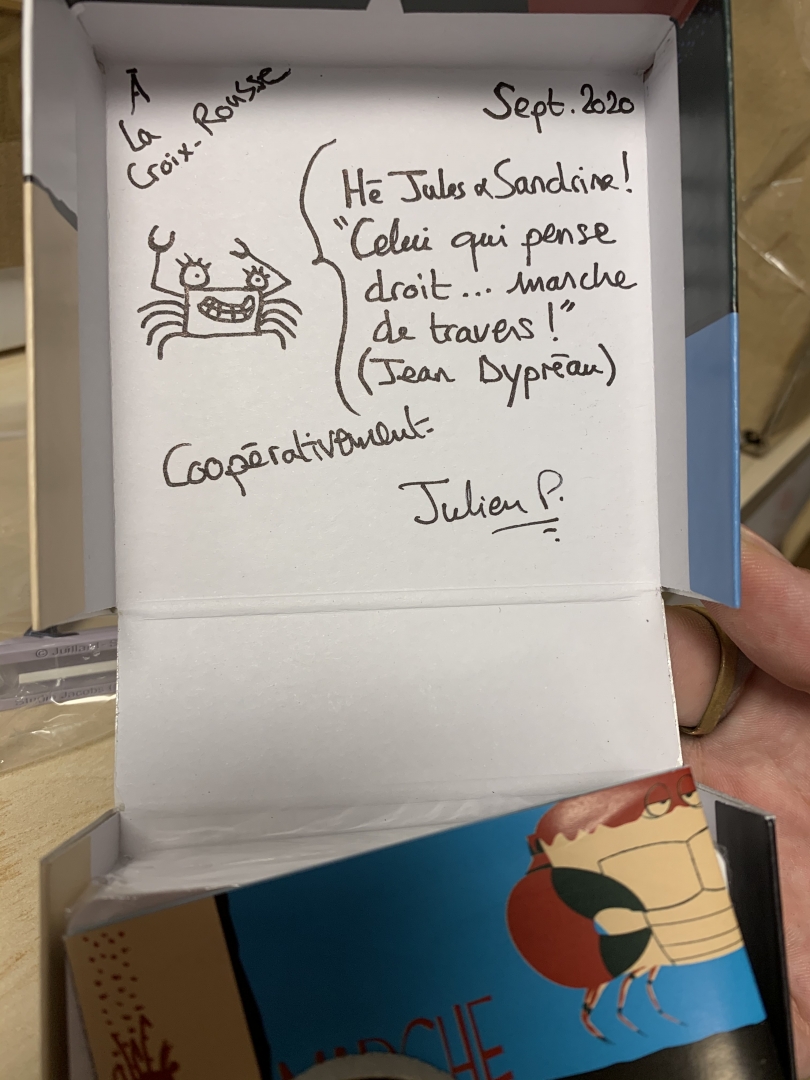 À
La
Croix-Rousse
Sept. 2020
Hē Jules & Sandrine!
"Celui qui pense
droit... marche
de travers !"
(Jean Dypréau)
Coopérativement
Julien P.
© Juillard
Jacobs
MARCHE